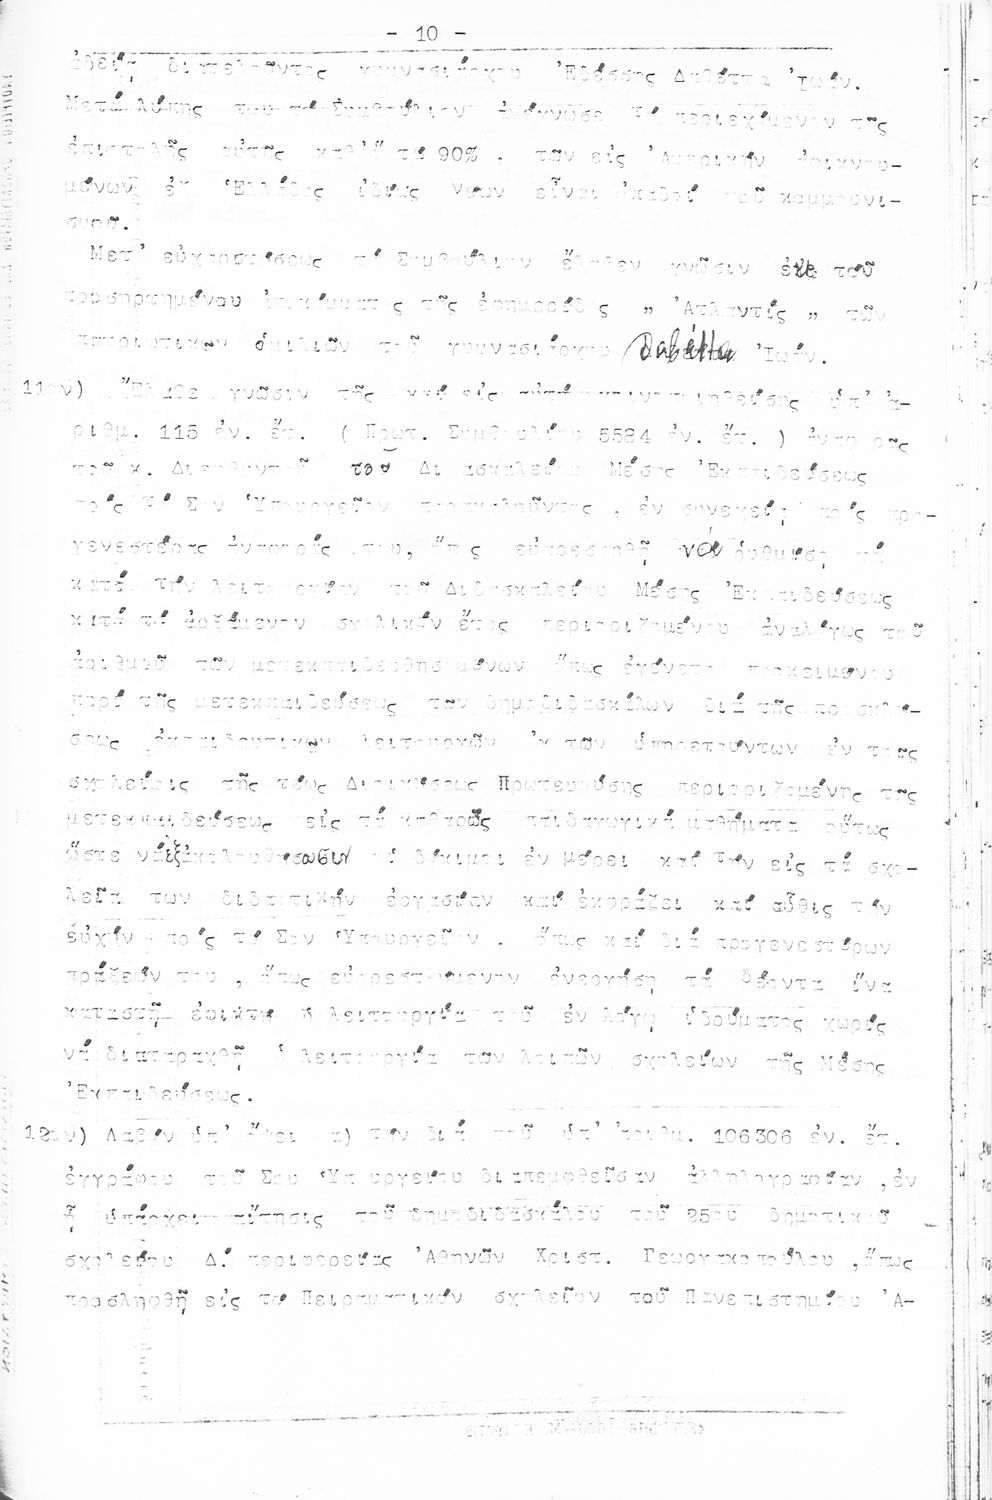 - 10 -
ἀδείᾳ διατελοῦντος γυμνασιάρχου Ἐδέσσης Δαβέττα Ἰωάν.
Μετὰ λύπης τοῦτο τό Συμβούλιον ἀνέγνωσε τό περιεχόμενον τῆς
ἐπιστολῆς αὐτῆς καθ' ἥν τά 90% , τῶν εἰς Ἀμερικήν ἀφικνου-
μένων ἐξ Ἑλλάδος νέων εἶναι ὀπαδοί τοῦ κομμουνι-
σμοῦ.
Μετ' εὐχαριστήσεως τό Συμβούλιον ἔλαβεν γνῶσιν ἐκ τοῦ
προσηρτημένου ἀποκόμματος τῆς ἐφημερίδος „ Ἀτλαντίς „ τῶν
πατριωτικῶν ὁμιλιῶν τοῦ γυμνασιάρχου Δαβέττα Ἰωάν.
11ον) Ἔλαβε γνῶσιν τῆς καί εἰς αὐτό κοινοποιηθείσης ὑπ' ἀ-
ριθμ. 115 ἐν. ἔτ. ( Πρωτ. Συμβουλίου 5584 ἐν. ἔτ. ) ἀναφορᾶς
τοῦ κ. Διευθυντοῦ τοῦ Διδασκαλείου Μέσης Ἐκπαιδεύσεως
πρός τό Σον Ὑπουργεῖον παρακαλοῦντος , ἐν συνεχείᾳ πρός προ-
γενεστέρας ἀναφοράς του, ὅπως εὐαρεστηθῇ νά ρυθμίσῃ τά
κατά τήν λειτουργίαν τοῦ Διδασκαλείου Μέσης Ἐκπαιδεύσεως
κατά τό ἀρξάμενον σχολικόν ἔτος περιοριζομένου ἀναλόγως τοῦ
ἀριθμοῦ τῶν μετεκπαιδευθησομένων ὅπως ἐγένετο προκειμένου
περί τῆς μετεκπαιδεύσεως τῶν δημοδιδασκάλων διά τῆς προσκλή-
σεως ἐκπαιδευτικῶν λειτουργῶν ἐκ τῶν ὑπηρετούντων ἐν τοῖς
σχολείοις τῆς τέως Διοικήσεως Πρωτευούσης περιοριζομένης τῆς
μετεκπαιδεύσεως εἰς τά καθαρῶς παιδαγωγικά μαθήματα οὕτως
ὥστε νά ἐξακολουθήσωσιν οἱ δόκιμοι ἐν μέρει καί τήν εἰς τά σχο-
λεῖα των διδακτικήν ἐργασίαν καί ἐκφράζει καί αὖθις τήν
εὐχήν πρός τό Σον Ὑπουργεῖον . ὅπως καί διά προγενεστέρων
πράξεών του , ὅπως εὐαρεστούμενον ἐνεργήσῃ τά δέοντα ἵνα
καταστῇ ἐφικτή ἡ λειτουργία τοῦ ἐν λόγῳ ἱδρύματος χωρίς
νά διαταραχθῇ ἡ λειτουργία τῶν λοιπῶν σχολείων τῆς Μέσης
Ἐκπαιδεύσεως.
12ον) Λαβόν ὑπ' ὄψει α) τήν διά τοῦ ὑπ' ἀριθμ. 106306 ἐν. ἔτ.
ἐγγράφου τοῦ Σου Ὑπουργείου διαπεμφθεῖσαν ἀλληλογραφίαν ,ἐν
ᾗ ὑπάρχει αἴτησις τοῦ δημοδιδασκάλου τοῦ 25ου δημοτικοῦ
σχολείου Δ. περιφερείας Ἀθηνῶν Χριστ. Γεωργακοπούλου ,ὅπως
προσληφθῇ εἰς τό Πειραματικόν σχολεῖον τοῦ Πανεπιστημίου Ἀ-